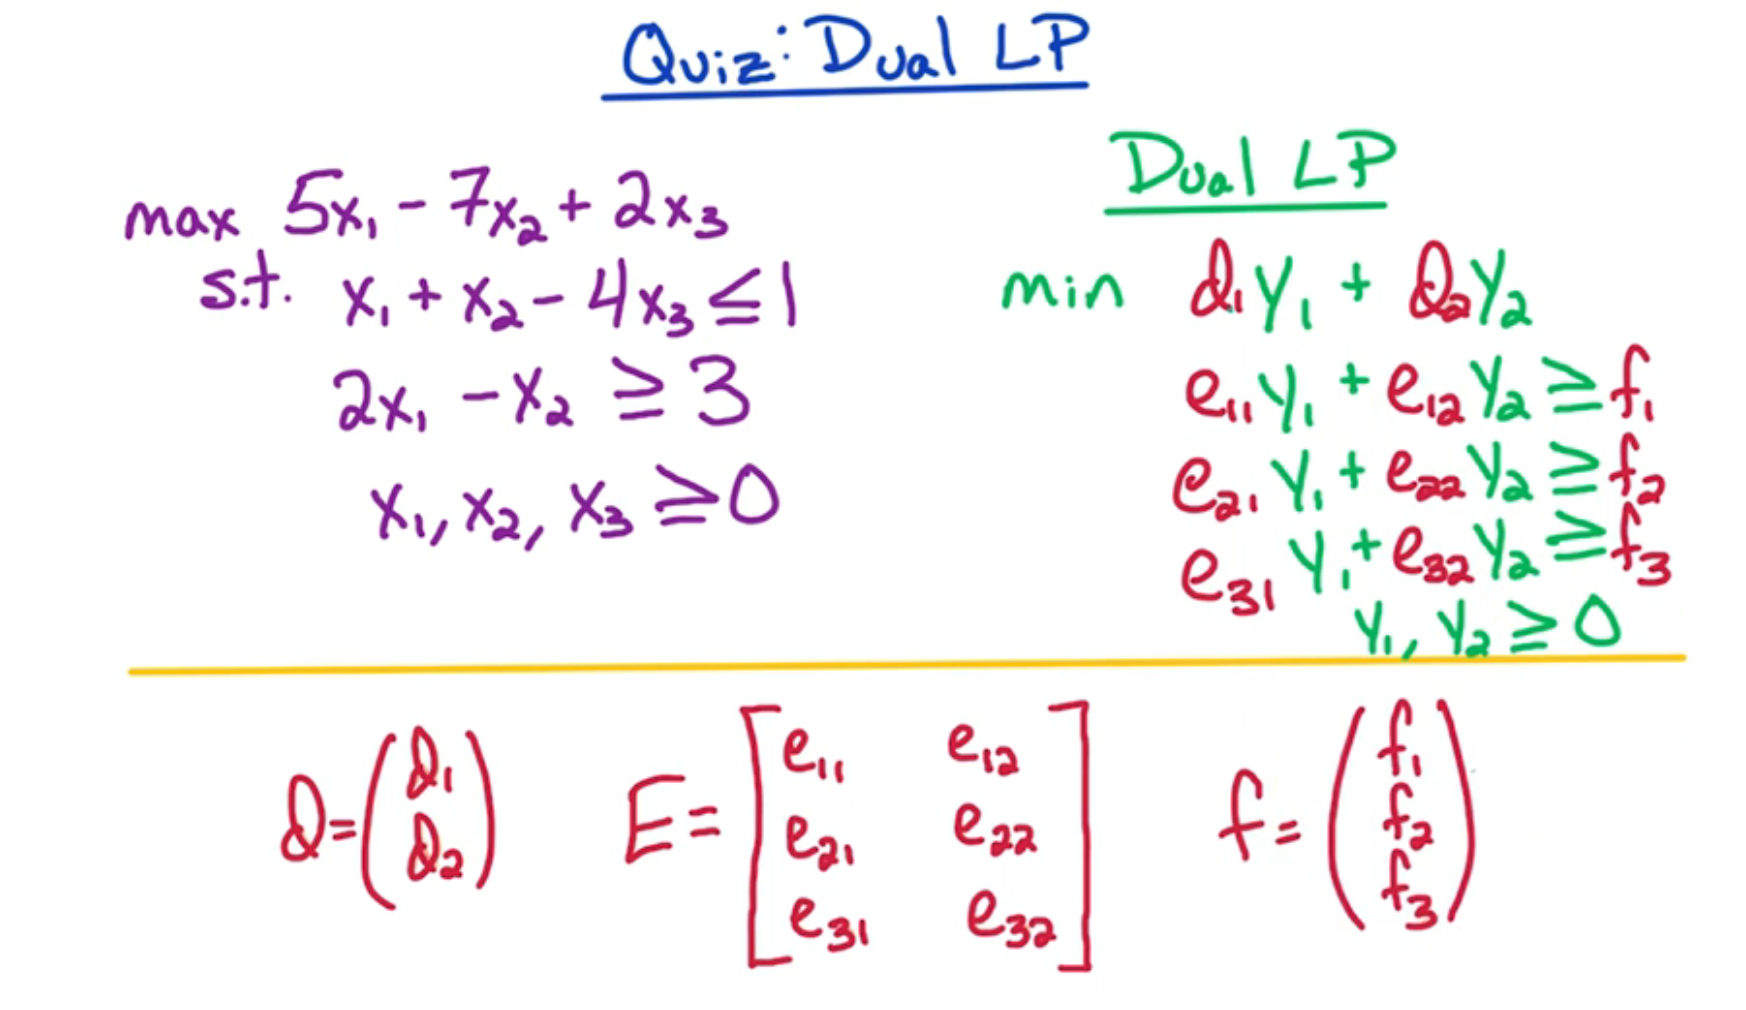 Quiz: Dual LP
max 5x₁ - 7x₂ + 2x₃
s.t. x₁ + x₂ - 4x₃ ≤ 1
2x₁ - x₂ ≥ 3
x₁, x₂, x₃ ≥ 0
Dual LP
min d₁y₁ + d₂y₂
e₁₁y₁ + e₁₂y₂ ≥ f₁
e₂₁y₁ + e₂₂y₂ ≥ f₂
e₃₁y₁ + e₃₂y₂ ≥ f₃
y₁, y₂ ≥ 0
d = (d₁
d₂)
E = [e₁₁ e₁₂
e₂₁ e₂₂
e₃₁ e₃₂]
f = (f₁
f₂
f₃)